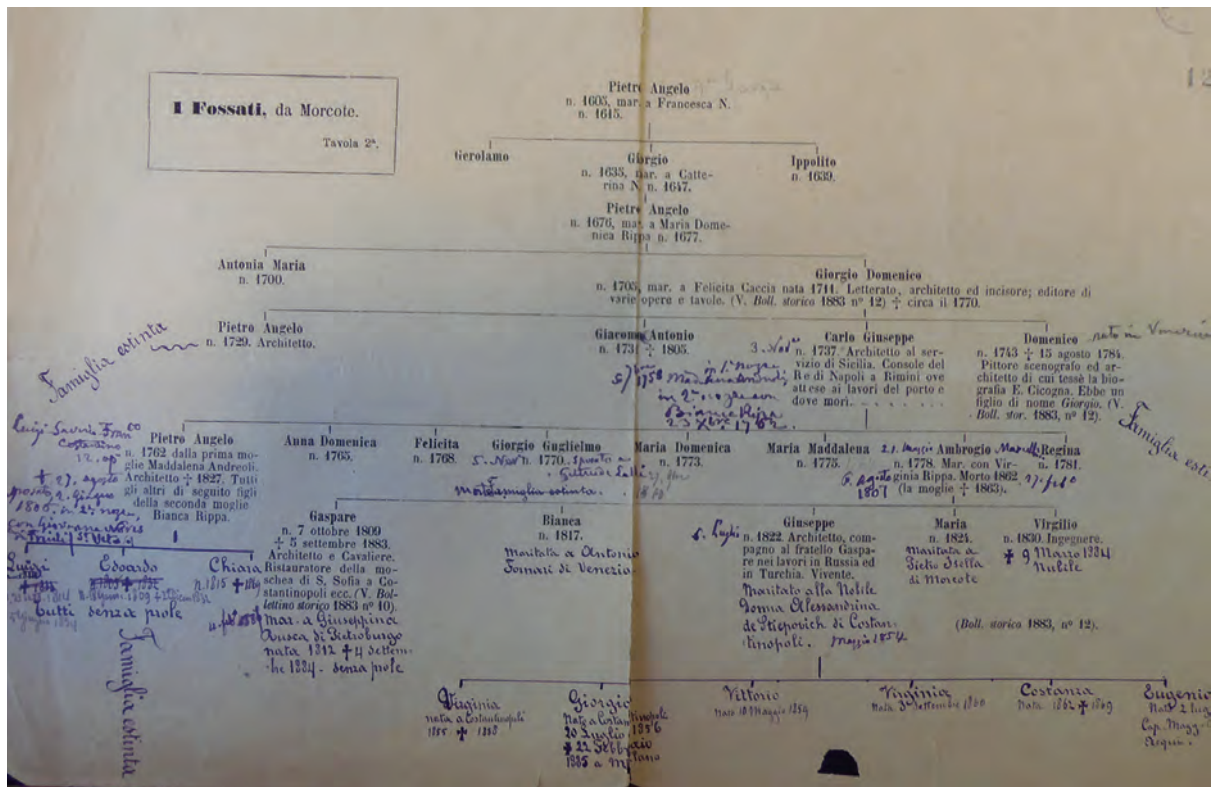 12
I Fossati, da Morcote.
Tavola 2ª.
Pietro Angelo
n. 1605, mar. a Francesca N.
n. 1615.
Gerolamo
Giorgio
n. 1635, mar. a Catte-
rina N. n. 1647.
Ippolito
n. 1639.
Pietro Angelo
n. 1676, mar. a Maria Dome-
nica Rippa n. 1677.
Antonia Maria
n. 1700.
Giorgio Domenico
n. 1705, mar. a Felicita Caccia nata 1711. Letterato, architetto ed incisore; editore di
varie opere e tavole. (V. Boll. storico 1883 nº 12) † circa il 1770.
Famiglia estinta
Pietro Angelo
n. 1729. Architetto.
Giacomo Antonio
n. 173 † 1805.
in 2ª
Bianca Ripa
23 Xbre 1762.
Carlo Giuseppe
n. 1737. Architetto al ser-
vizio di Sicilia. Console del
Re di Napoli a Rimini ove
attese ai lavori del porto e
dove morì. . . . . . . .
Domenico nato in Venezia
n. 1743 † 15 agosto 1784.
Pittore scenografo ed ar-
chitetto di cui tessè la bio-
grafia E. Cicogna. Ebbe un
figlio di nome Giorgio. (V.
Boll. stor. 1883, nº 12).
Famiglia
Pietro Angelo
n. 1762 dalla prima mo-
glie Maddalena Andreoli.
Architetto † 1827. Tutti
gli altri di seguito figli
della seconda moglie
Bianca Rippa.
Luigi
† 27. agosto
Anna Domenica
n. 1765.
Felicita
n. 1768.
Giorgio Guglielmo
n. 1770.
Famiglia estinta.
Maria Domenica
n. 1773.
Maria Maddalena
n. 1775.
Ambrogio
n. 1778. Mar. con Vir-
ginia Rippa. Morto 1862
(la moglie † 1863).
Regina
n. 1781.
Luigi
Edoardo
Chiara
n. 1815 † 1869
tutti senza prole
Famiglia estinta
Gaspare
n. 7 ottobre 1809
† 5 settembre 1883.
Architetto e Cavaliere.
Ristauratore della mo-
schea di S. Sofia a Co-
stantinopoli ecc. (V. Bol-
lettino storico 1883 nº 10).
mar. a Giuseppina
di Pietroburgo
nata 1812 † 4 settem-
bre 1884 - senza prole
Bianca
n. 1817.
maritata a Antonio
Fornari di Venezia
Giuseppe
n. 1822. Architetto, com-
pagno al fratello Gaspa-
re nei lavori in Russia ed
in Turchia. Vivente.
Maritato alla Nobile
Donna Alessandrina
de Stiepovich di Costan-
tinopoli. Maggio 1854
Maria
n. 1824.
maritata a
Pietro Stella
di Morcote
Virgilio
n. 1830. Ingegnere.
† 9 Marzo 1884
Nubile
(Boll. storico 1883, nº 12).
Virginia
nata a Costantinopoli
1855 † 1858
Giorgio
Nato a Costantinopole
20 Luglio 1856
† 22 Febbraio
1885 a Milano
Vittorio
Nato 10 Maggio 1859
Virginia
Nata Settembre 1860
Costanza
Nata 1862 † 1869
Eugenio